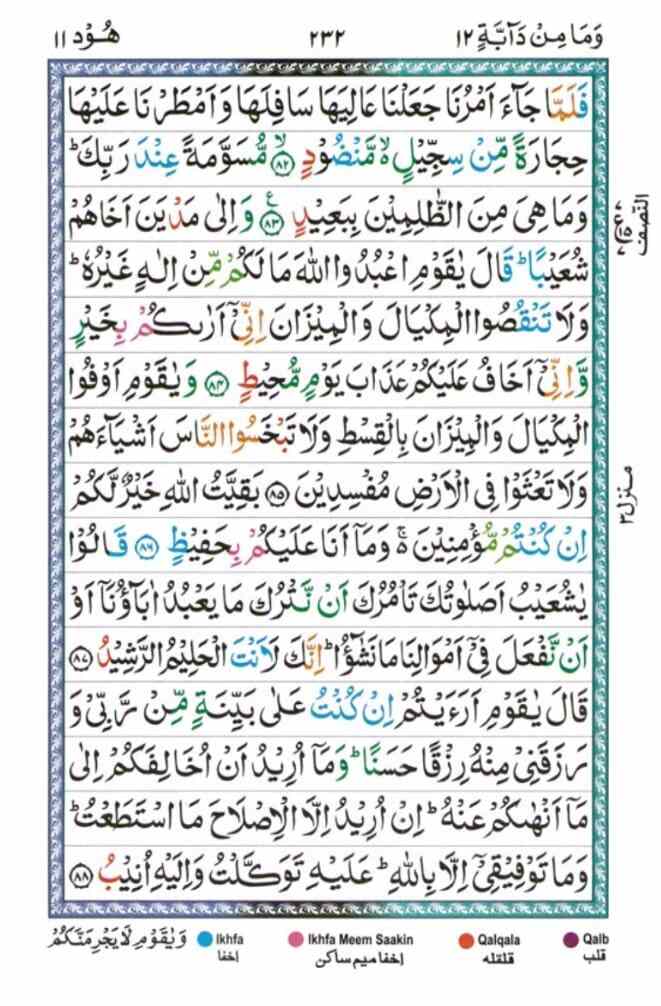 وَمَا مِنْ دَآبَّةٍ ١٢ ٢٣٢ هُوْد ١١
فَلَمَّا جَآءَ اَمْرُنَا جَعَلْنَا عَالِيَهَا سَافِلَهَا وَاَمْطَرْنَا عَلَيْهَا
حِجَارَةً مِّنْ سِجِّيْلٍ ۙ مَّنْضُوْدٍ ﴿٨٢﴾ۙ مُّسَوَّمَةً عِنْدَ رَبِّكَ ؕ
وَمَا هِىَ مِنَ الظّٰلِمِيْنَ بِبَعِيْدٍ ﴿٨٣﴾ ع وَاِلٰى مَدْيَنَ اَخَاهُمْ
شُعَيْبًا ؕ قَالَ يٰقَوْمِ اعْبُدُوا اللّٰهَ مَا لَكُمْ مِّنْ اِلٰهٍ غَيْرُهٗ ؕ
وَلَا تَنْقُصُوا الْمِكْيَالَ وَالْمِيْزَانَ اِنِّىْۤ اَرٰىكُمْ بِخَيْرٍ
وَّاِنِّىْۤ اَخَافُ عَلَيْكُمْ عَذَابَ يَوْمٍ مُّحِيْطٍ ﴿٨٤﴾ وَيٰقَوْمِ اَوْفُوا
الْمِكْيَالَ وَالْمِيْزَانَ بِالْقِسْطِ وَلَا تَبْخَسُوا النَّاسَ اَشْيَآءَهُمْ
وَلَا تَعْثَوْا فِى الْاَرْضِ مُفْسِدِيْنَ ﴿٨٥﴾ بَقِيَّتُ اللّٰهِ خَيْرٌ لَّكُمْ
اِنْ كُنْتُمْ مُّؤْمِنِيْنَ ۚ۬ وَمَاۤ اَنَا عَلَيْكُمْ بِحَفِيْظٍ ﴿٨٦﴾ قَالُوْا
يٰشُعَيْبُ اَصَلٰوتُكَ تَاْمُرُكَ اَنْ نَّتْرُكَ مَا يَعْبُدُ اٰبَآؤُنَاۤ اَوْ
اَنْ نَّفْعَلَ فِىْۤ اَمْوَالِنَا مَا نَشٰٓؤُا ؕ اِنَّكَ لَاَنْتَ الْحَلِيْمُ الرَّشِيْدُ ﴿٨٧﴾
قَالَ يٰقَوْمِ اَرَءَيْتُمْ اِنْ كُنْتُ عَلٰى بَيِّنَةٍ مِّنْ رَّبِّىْ وَ
رَزَقَنِىْ مِنْهُ رِزْقًا حَسَنًا ؕ وَمَاۤ اُرِيْدُ اَنْ اُخَالِفَكُمْ اِلٰى
مَاۤ اَنْهٰىكُمْ عَنْهُ ؕ اِنْ اُرِيْدُ اِلَّا الْاِصْلَاحَ مَا اسْتَطَعْتُ ؕ
وَمَا تَوْفِيْقِىْۤ اِلَّا بِاللّٰهِ ؕ عَلَيْهِ تَوَكَّلْتُ وَاِلَيْهِ اُنِيْبُ ﴿٨٨﴾
النّصف
منزل ٣
وَيٰقَوْمِ لَا يَجْرِمَنَّكُمْ
Ikhfa Ikhfa Meem Saakin Qalqala Qalb
اخفا اخفا میم ساکن قلقله قلب